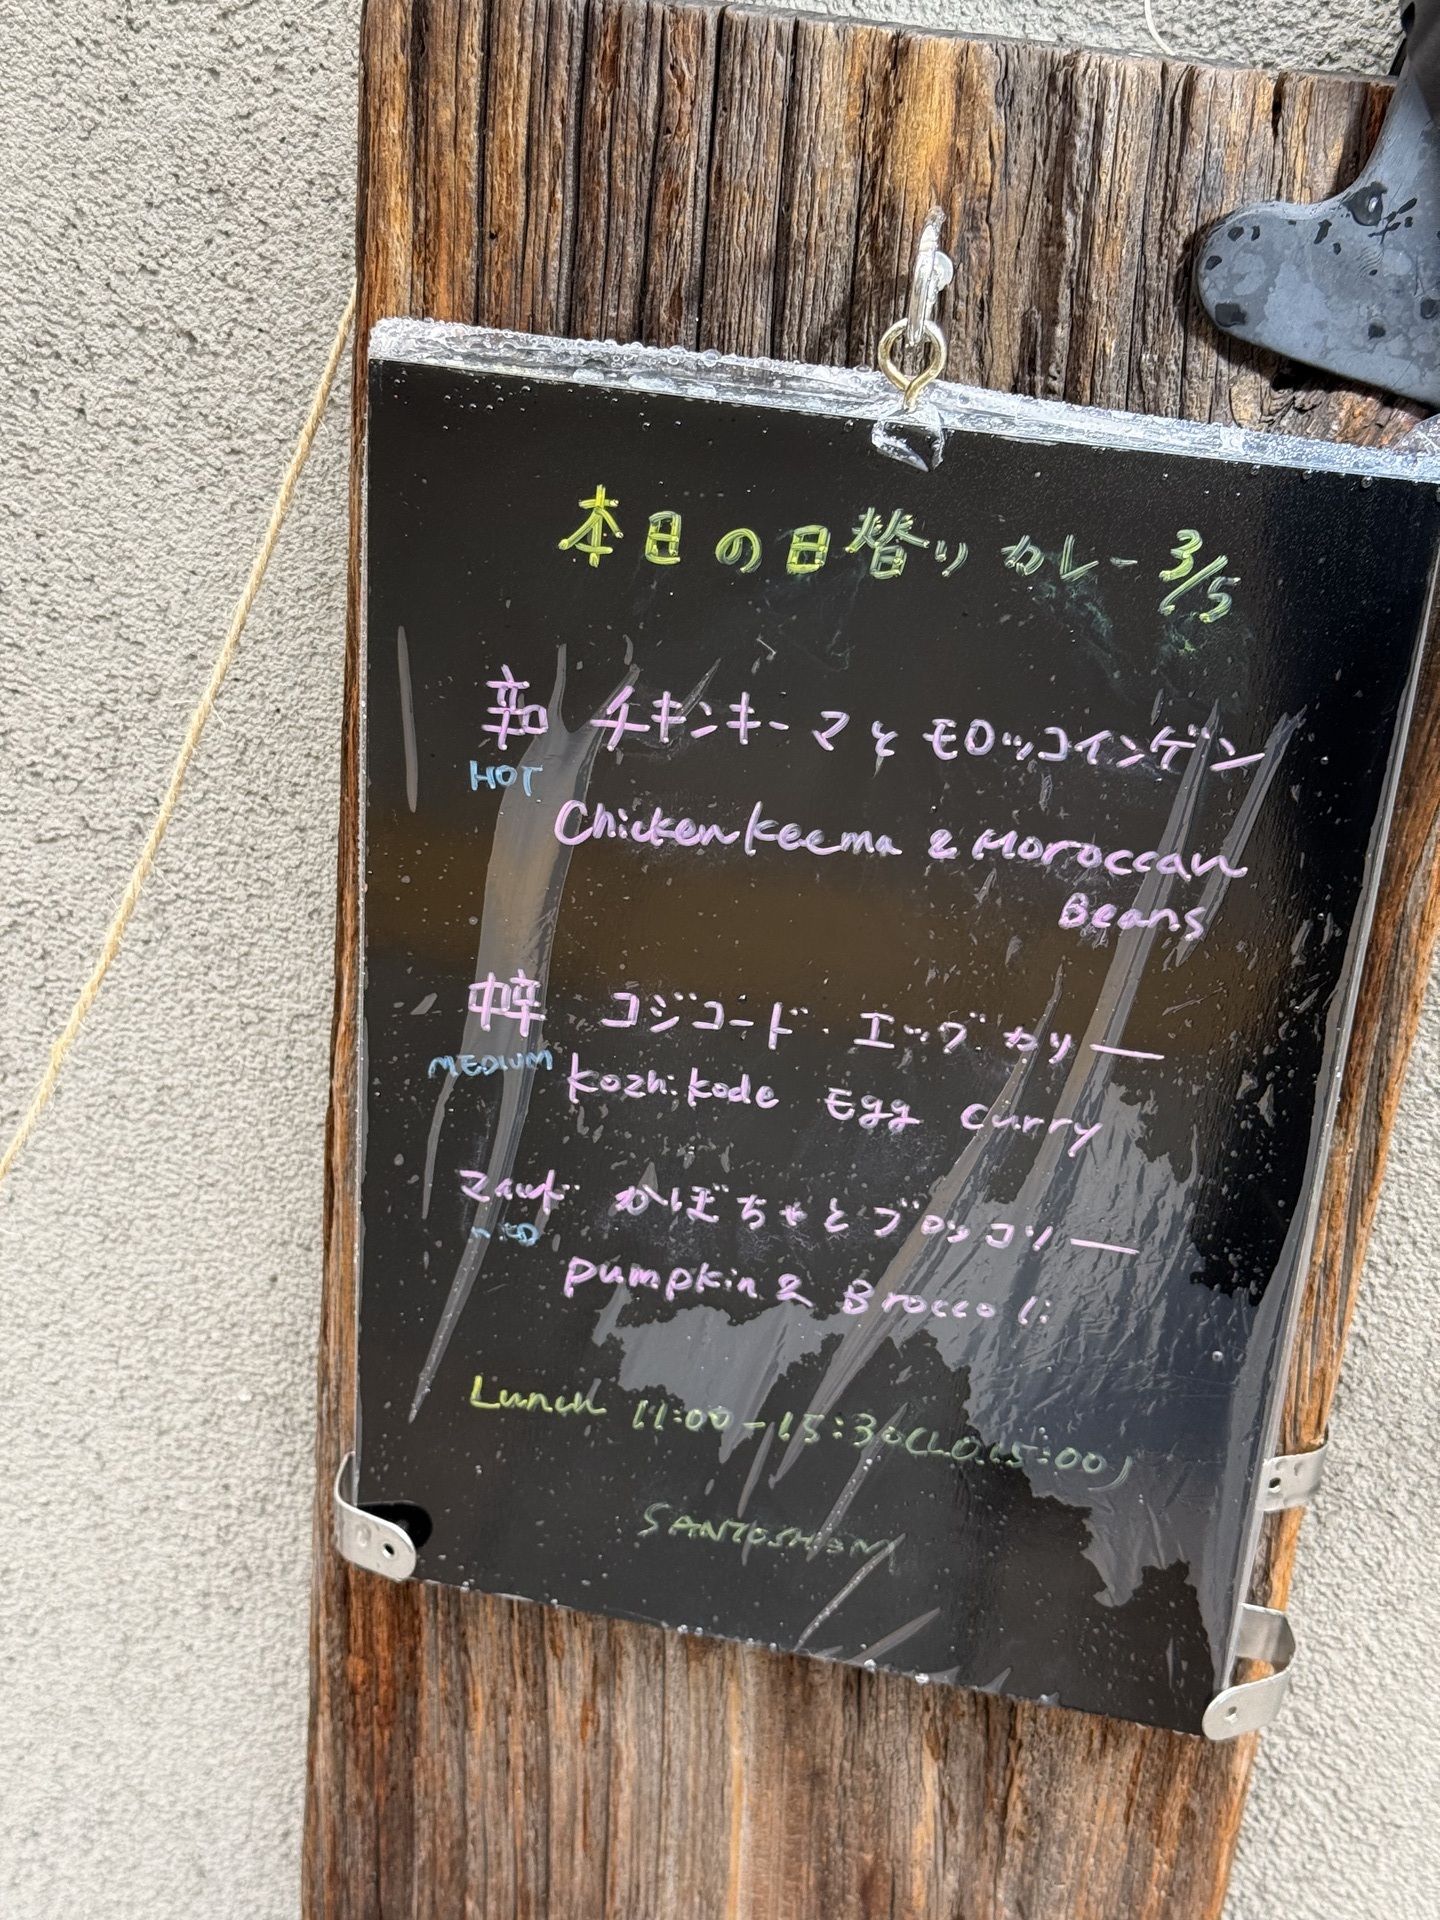 本日の日替りカレー 3/5
辛口 チキンキーマとモロッコインゲン
HOT
Chicken Keema & Moroccan
Beans
中辛 コジコード・エッグカリー
MEDIUM
Kozhikode Egg Curry
マイルド かぼちゃとブロッコリー
pumpkin & Broccoli
Lunch 11:00-15:30(L.O.15:00)